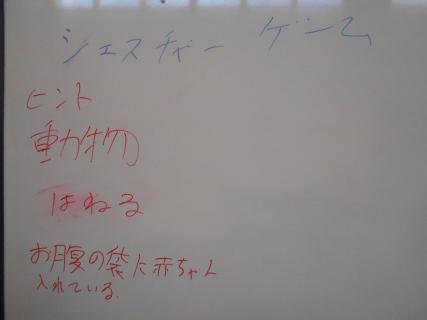 ジェスチャー ゲーム
ヒント
動物
はねる
お腹の袋に赤ちゃん
入れている。